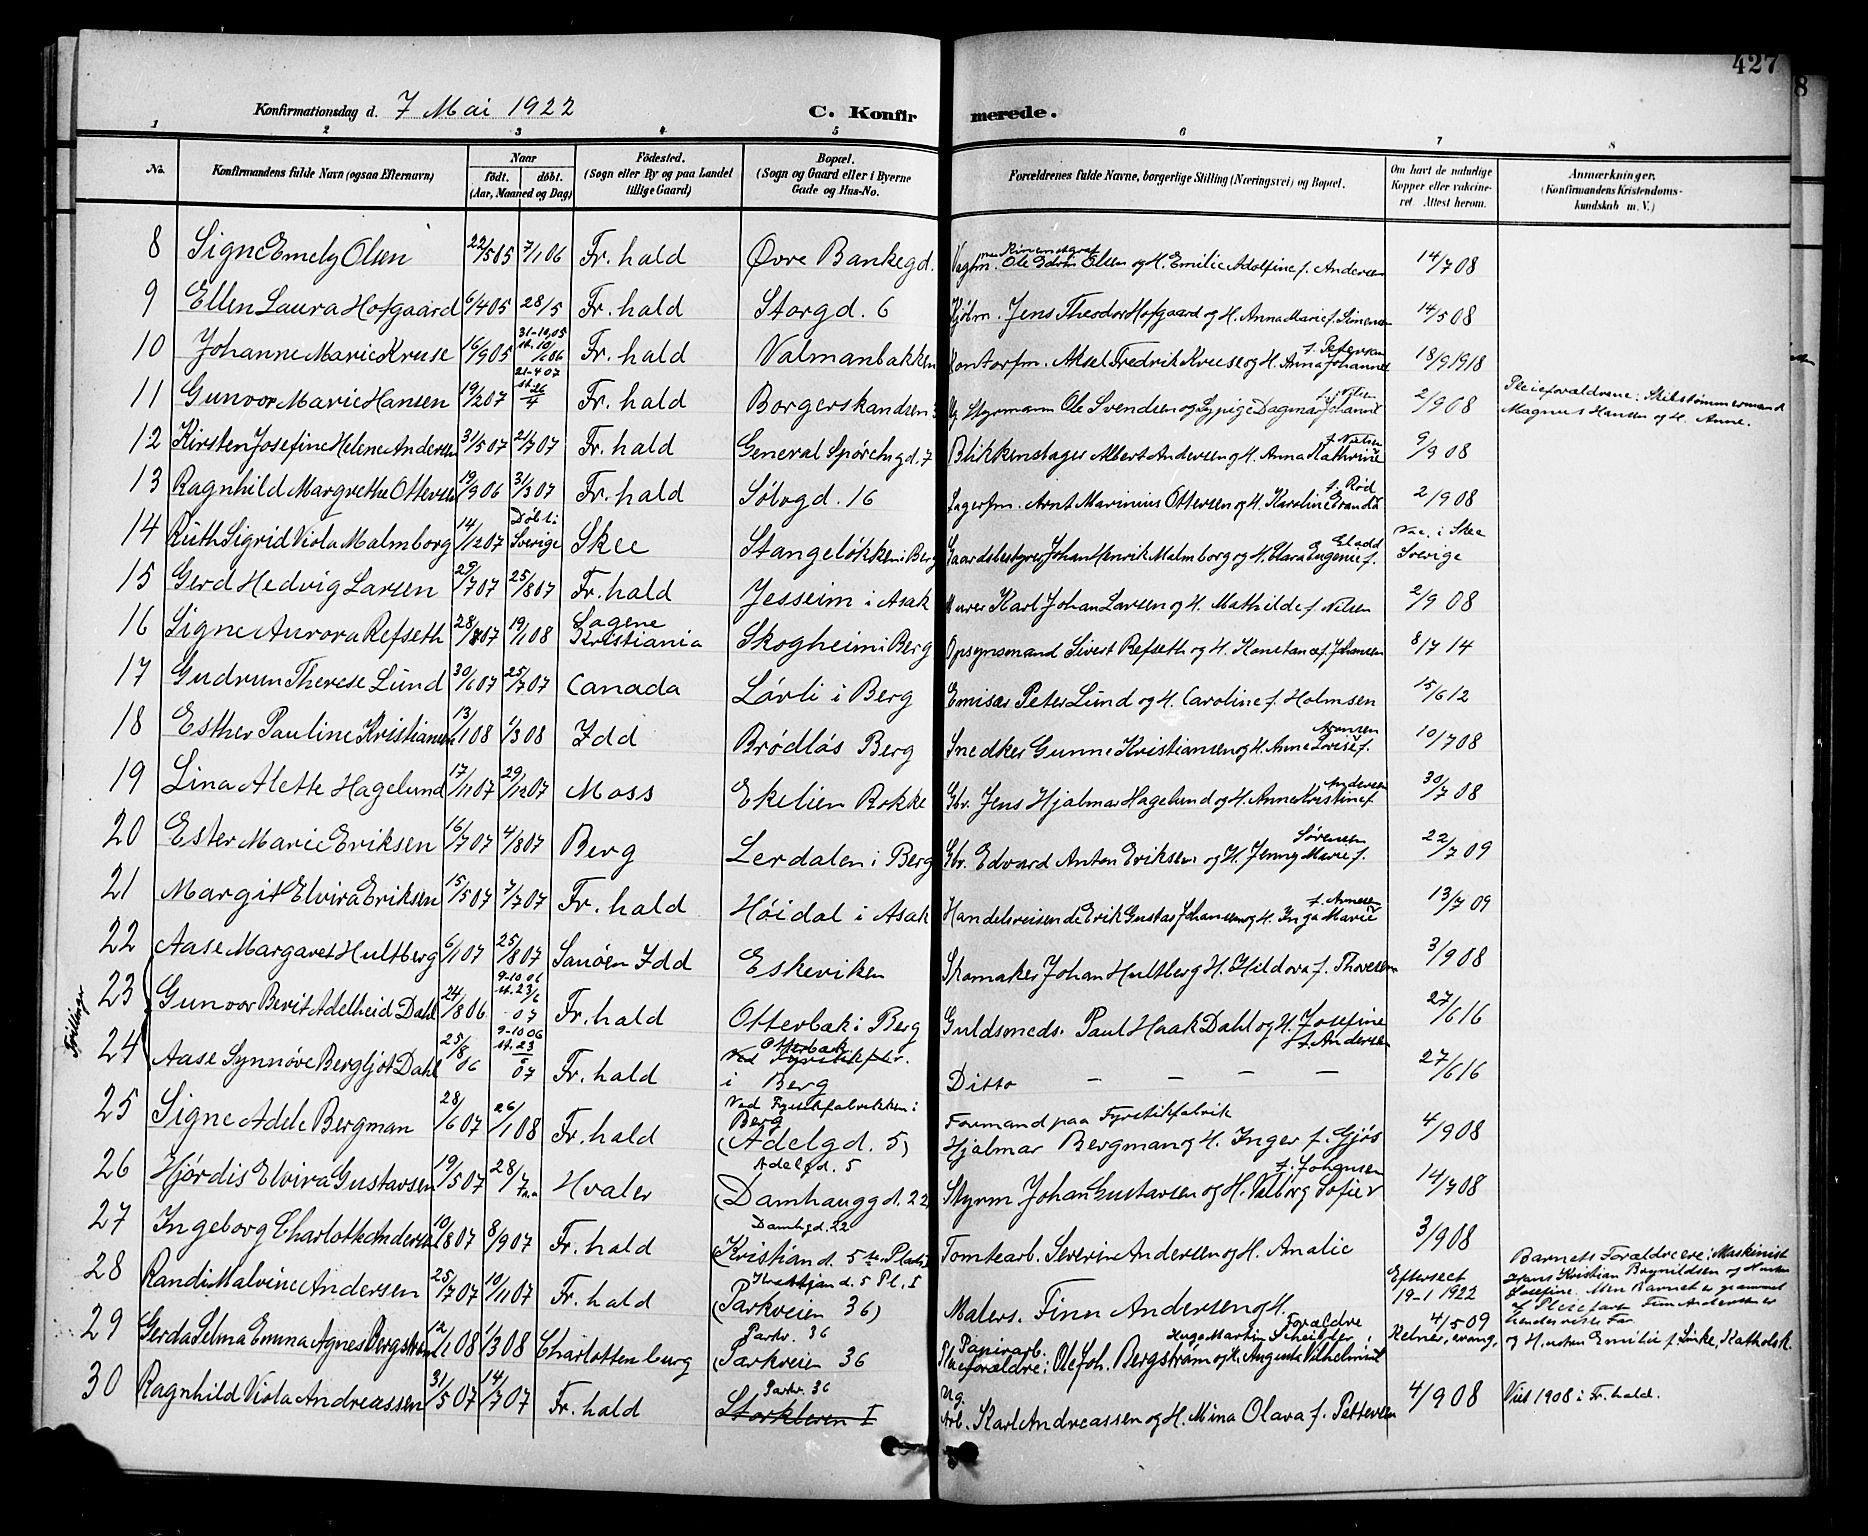 427
8
Konfirmationsdag d. 7 Mai 1922 C. Konfirmerede.
1 2 3 4 5 6 7 8
No. Konfirmandens fulde Navn (ogsaa Efternavn) Naar født. døbt. (Aar, Maaned og Dag) Fødested. (Sogn eller By og paa Landet tillige Gaard) Bopæl. (Sogn og Gaard eller i Byerne Gade og Hus-No. Forældrenes fulde Navne, borgerlige Stilling (Næringsvei) og Bopæl. Om havt de naturlige Kopper eller vakcineret. Attest herom. Anmerkninger. (Konfirmandens Kristendomskundskab m. V.)
8 Signe Emely Olsen 22/5 05 7/1 06 Fr. hald Øvre Bankegd. Vagtm. Ole Edvin Olsen og H. Emilie Adolfine f. Andersen 14/7 08
9 Ellen Laura Hofgaard 6/4 05 28/5 Fr. hald Storgd. 6 Kjøbm. Jens Theodor Hofgaard og H. Anna Marie f. Simensen 14/5 08
10 Johanne Marie Kruse 16/9 05 31-10 05 st. 10/1 06 Fr. hald Valmanbakken Kontorfm. Aksel Fredrik Kruse og H. Anna Johanne f. Petersen 18/9 1918
11 Gunvor Marie Hansen 19/2 07 21-4 07 st. 26/4 Fr. hald Borgerskandsen Ug. Styrmann Ole Svendsen og Ug. pige Dagmar Johanne f. Nilsen 2/9 08 Pleieforældrene: Skibstømmermand Magnus Hansen og H. Anne.
12 Kirsten Josefine Helene Andersen 31/5 07 21/7 07 Fr. hald General Spørchsgd. 7 Blikkenslager Albert Andersen og H. Anna Kathrine f. Nielsen 9/9 08
13 Ragnhild Margrethe Ottersen 19/9 06 31/3 07 Fr. hald Sølvgd. 16 Lagerfm. Arnt Marinius Ottersen og H. Karoline Granda f. Rød 2/9 08
14 Ruth Sigrid Viola Malmborg 14/12 07 Døbt i Sverige Skee Stangeløkken i Berg Gaardsbestyrer Johan Henrik Malmborg og H. Clara Eugenie f. Vac. i Skee Sverige
15 Gerd Hedvig Larsen 29/7 07 25/8 07 Fr. hald Jesseim i Asak Murer Karl Johan Larsen og H. Mathilde f. Nilsen 2/9 08
16 Signe Aurora Refseth 28/ 07 19/1 08 Sagene Kristiania Skogheim i Berg Opsynsmand Sivert Refseth og H. Konstance f. Johansen 8/7 14
17 Gudrun Therese Lund 30/6 07 25/7 07 Canada Løvli i Berg Emisær Peter Lund og H. Caroline f. Holmsen 15/6 12
18 Esther Pauline Kristiansen 13/1 08 1/3 08 Idd Brødløs Berg Snedker Gunne Kristiansen og H. Anne Lovise f. Aronsen 10/7 08
19 Lina Alette Hagelund 17/11 07 29/12 07 Moss Ekelien Rokke Gbr. Jens Hjalmar Hagelund og H. Anne Kristine f. Andersen 30/7 08
20 Ester Marie Eriksen 16/7 07 4/8 07 Berg Lerdalen i Berg Gbr. Edvard Anton Eriksen og H. Jenny Marie f. Sørensen 22/7 09
21 Margit Elvira Eriksen 15/5 07 7/7 07 Fr. hald Høidal i Asak Handelsreisende Erik Gustav Johansen og H. Inga Marie f. Arnesen 13/7 09
22 Aase Margaret Hultberg 6/1 07 25/8 07 Sauøen Idd Eskeviken Skomaker Johan Hultberg H. Hildora f. Thoresen 3/9 08
Tvillinger
23 Gunvor Berit Adelheid Dahl 24/8 06 9-10 06 st. 23/6 07 Fr. hald Otterbæk i Berg Guldsmeds. Paul Haak Dahl og H. Josefine f. Andersen 27/6 16
24 Aase Synnøve Bergljot Dahl 25/8 06 9-10 06 st. 23/ 07 Fr. hald Otterbæk i Berg Ditto — — — — 27/6 16
25 Signe Adele Bergman 28/6 07 26/1 08 Fr. hald Ved Fyrstikfabrikken i Berg (Adelgd. 5) Formand paa Fyrstikfabrik Hjalmar Bergman og H. Inger f. Gjøs 4/9 08
26 Hjørdis Elvira Gustavsen 19/5 07 28/7 Hvaler Adelgd. 5 (Damhauggd. 22) Styrm Johan Gustavsen og H. Valborg Sofie f. Johansen 14/7 08
27 Ingeborg Charlotte Andersen 10/8 07 8/9 07 Fr. hald Damhgd. 22 (Kristiand. 5te Plads) Tomtearb. Severin Andersen og H. Analie 3/9 08
28 Randi Malvine Andersen 25/7 07 10/11 07 Fr. hald Kristjand. 5 Pl. I (Parkveien 36) Malers. Finn Andersen og H. Eftersect 19-1 1922 Barnets Forældre er: Maskinist Hans Kristian Brynildsen og Hustru Josefine. Men Barnet er grammel Pleiefaren Finn Andersen er hendes virkl. Far
29 Gerda Selma Emma Agnes Bergstrøm 12/1 08 1/3 08 Charlottenburg Parkv. 36 (Parkveien 36 Papirarb. Hugo Martin Scheibler, Forældre Pleieforældre: Ole Joh. Bergstrøm og H. Augusta Vilhelmine 4/5 09 Kelner, evang. og Hustru Emilie f. Linke, Katholsk.
30 Ragnhild Viola Andreassen 31/5 07 14/7 07 Fr. hald Parkv. 36 Storkleven I Ug. Arb. Karl Andreassen og H. Mina Olava f. Pettersen 4/9 08 Viet 1908 i Fr. hald.